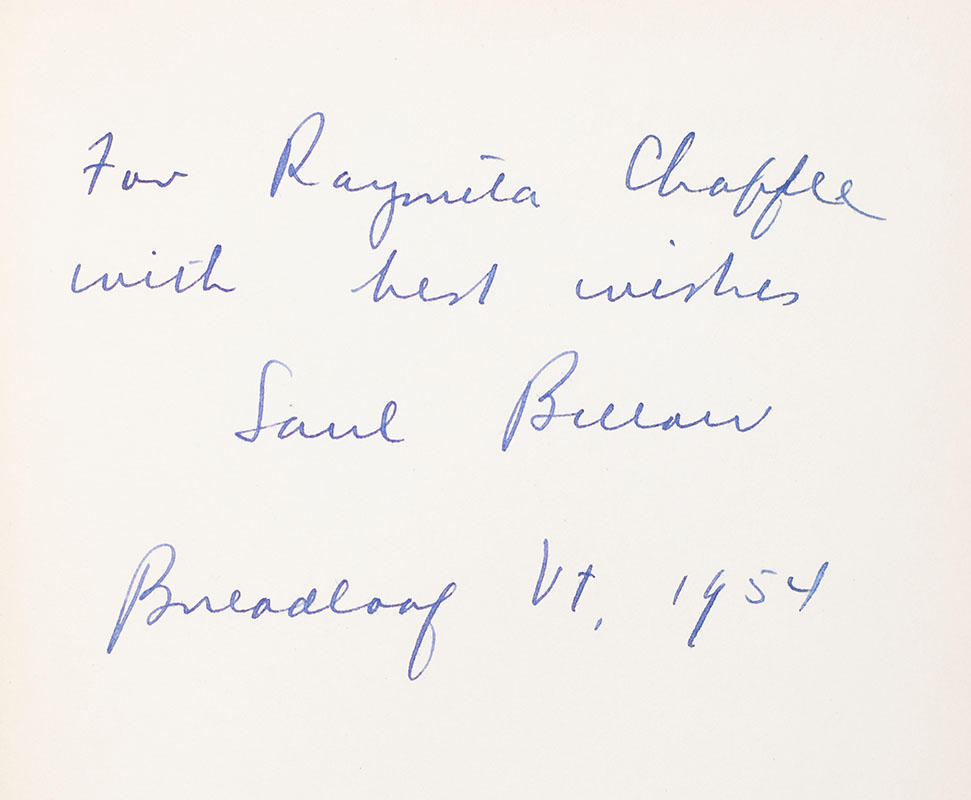 For Raymita Chaffee
with best wishes
Saul Bellow
Breadloaf Vt, 1954